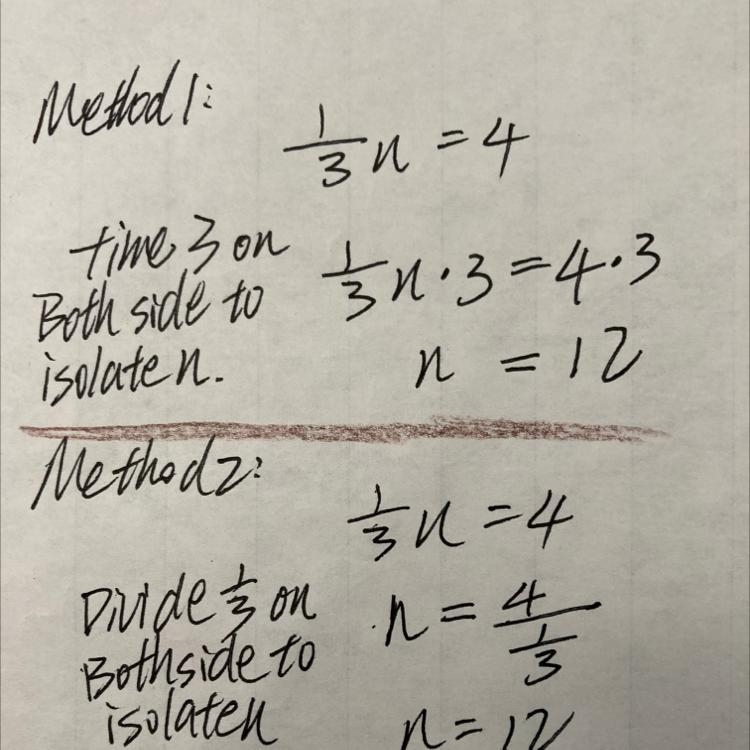 Method 1:
1/3 n = 4
time 3 on
Both side to
isolate n.
1/3 n · 3 = 4 · 3
n = 12
Method 2:
1/3 n = 4
Divide 1/3 on
Both side to
isolate n
n = 4/(1/3)
n = 12